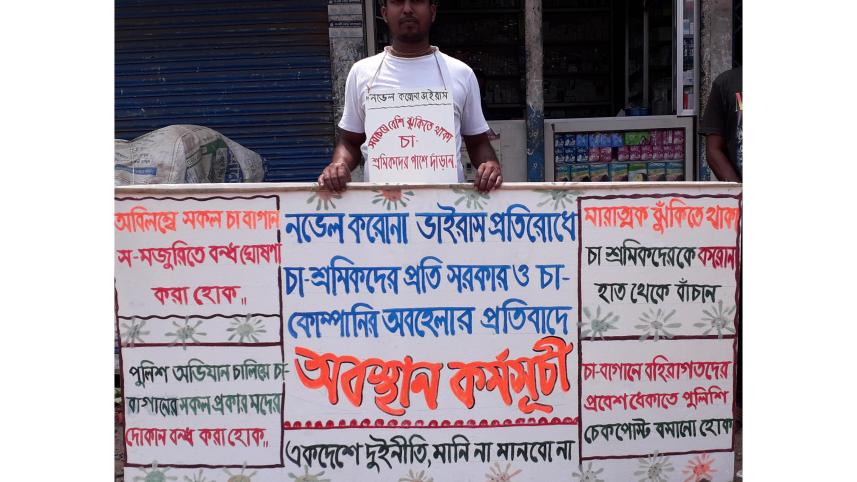 নভেল করোনা ভাইরাস
সবচেয়ে বেশি ঝুঁকিতে থাকা
চা-
শ্রমিকদের পাশে দাঁড়ান
অবিলম্বে সকল চা বাগান
স-মজুরিতে বন্ধ ঘোষণা
করা হোক,,
পুলিশ অভিযান চালিয়ে চা-
বাগানের সকল প্রকার মদের
দোকান বন্ধ করা হোক,,
নভেল করোনা ভাইরাস প্রতিরোধে
চা-শ্রমিকদের প্রতি সরকার ও চা-
কোম্পানির অবহেলার প্রতিবাদে
অবস্থান কর্মসূচী
একদেশে দুইনীতি, মানি না মানবো না
মারাত্মক ঝুঁকিতে থাকা
চা শ্রমিকদেরকে করোনা
হাত থেকে বাঁচান
চা-বাগানে বহিরাগতদের
প্রবেশ ঠেকাতে পুলিশি
চেকপোস্ট বসানো হোক